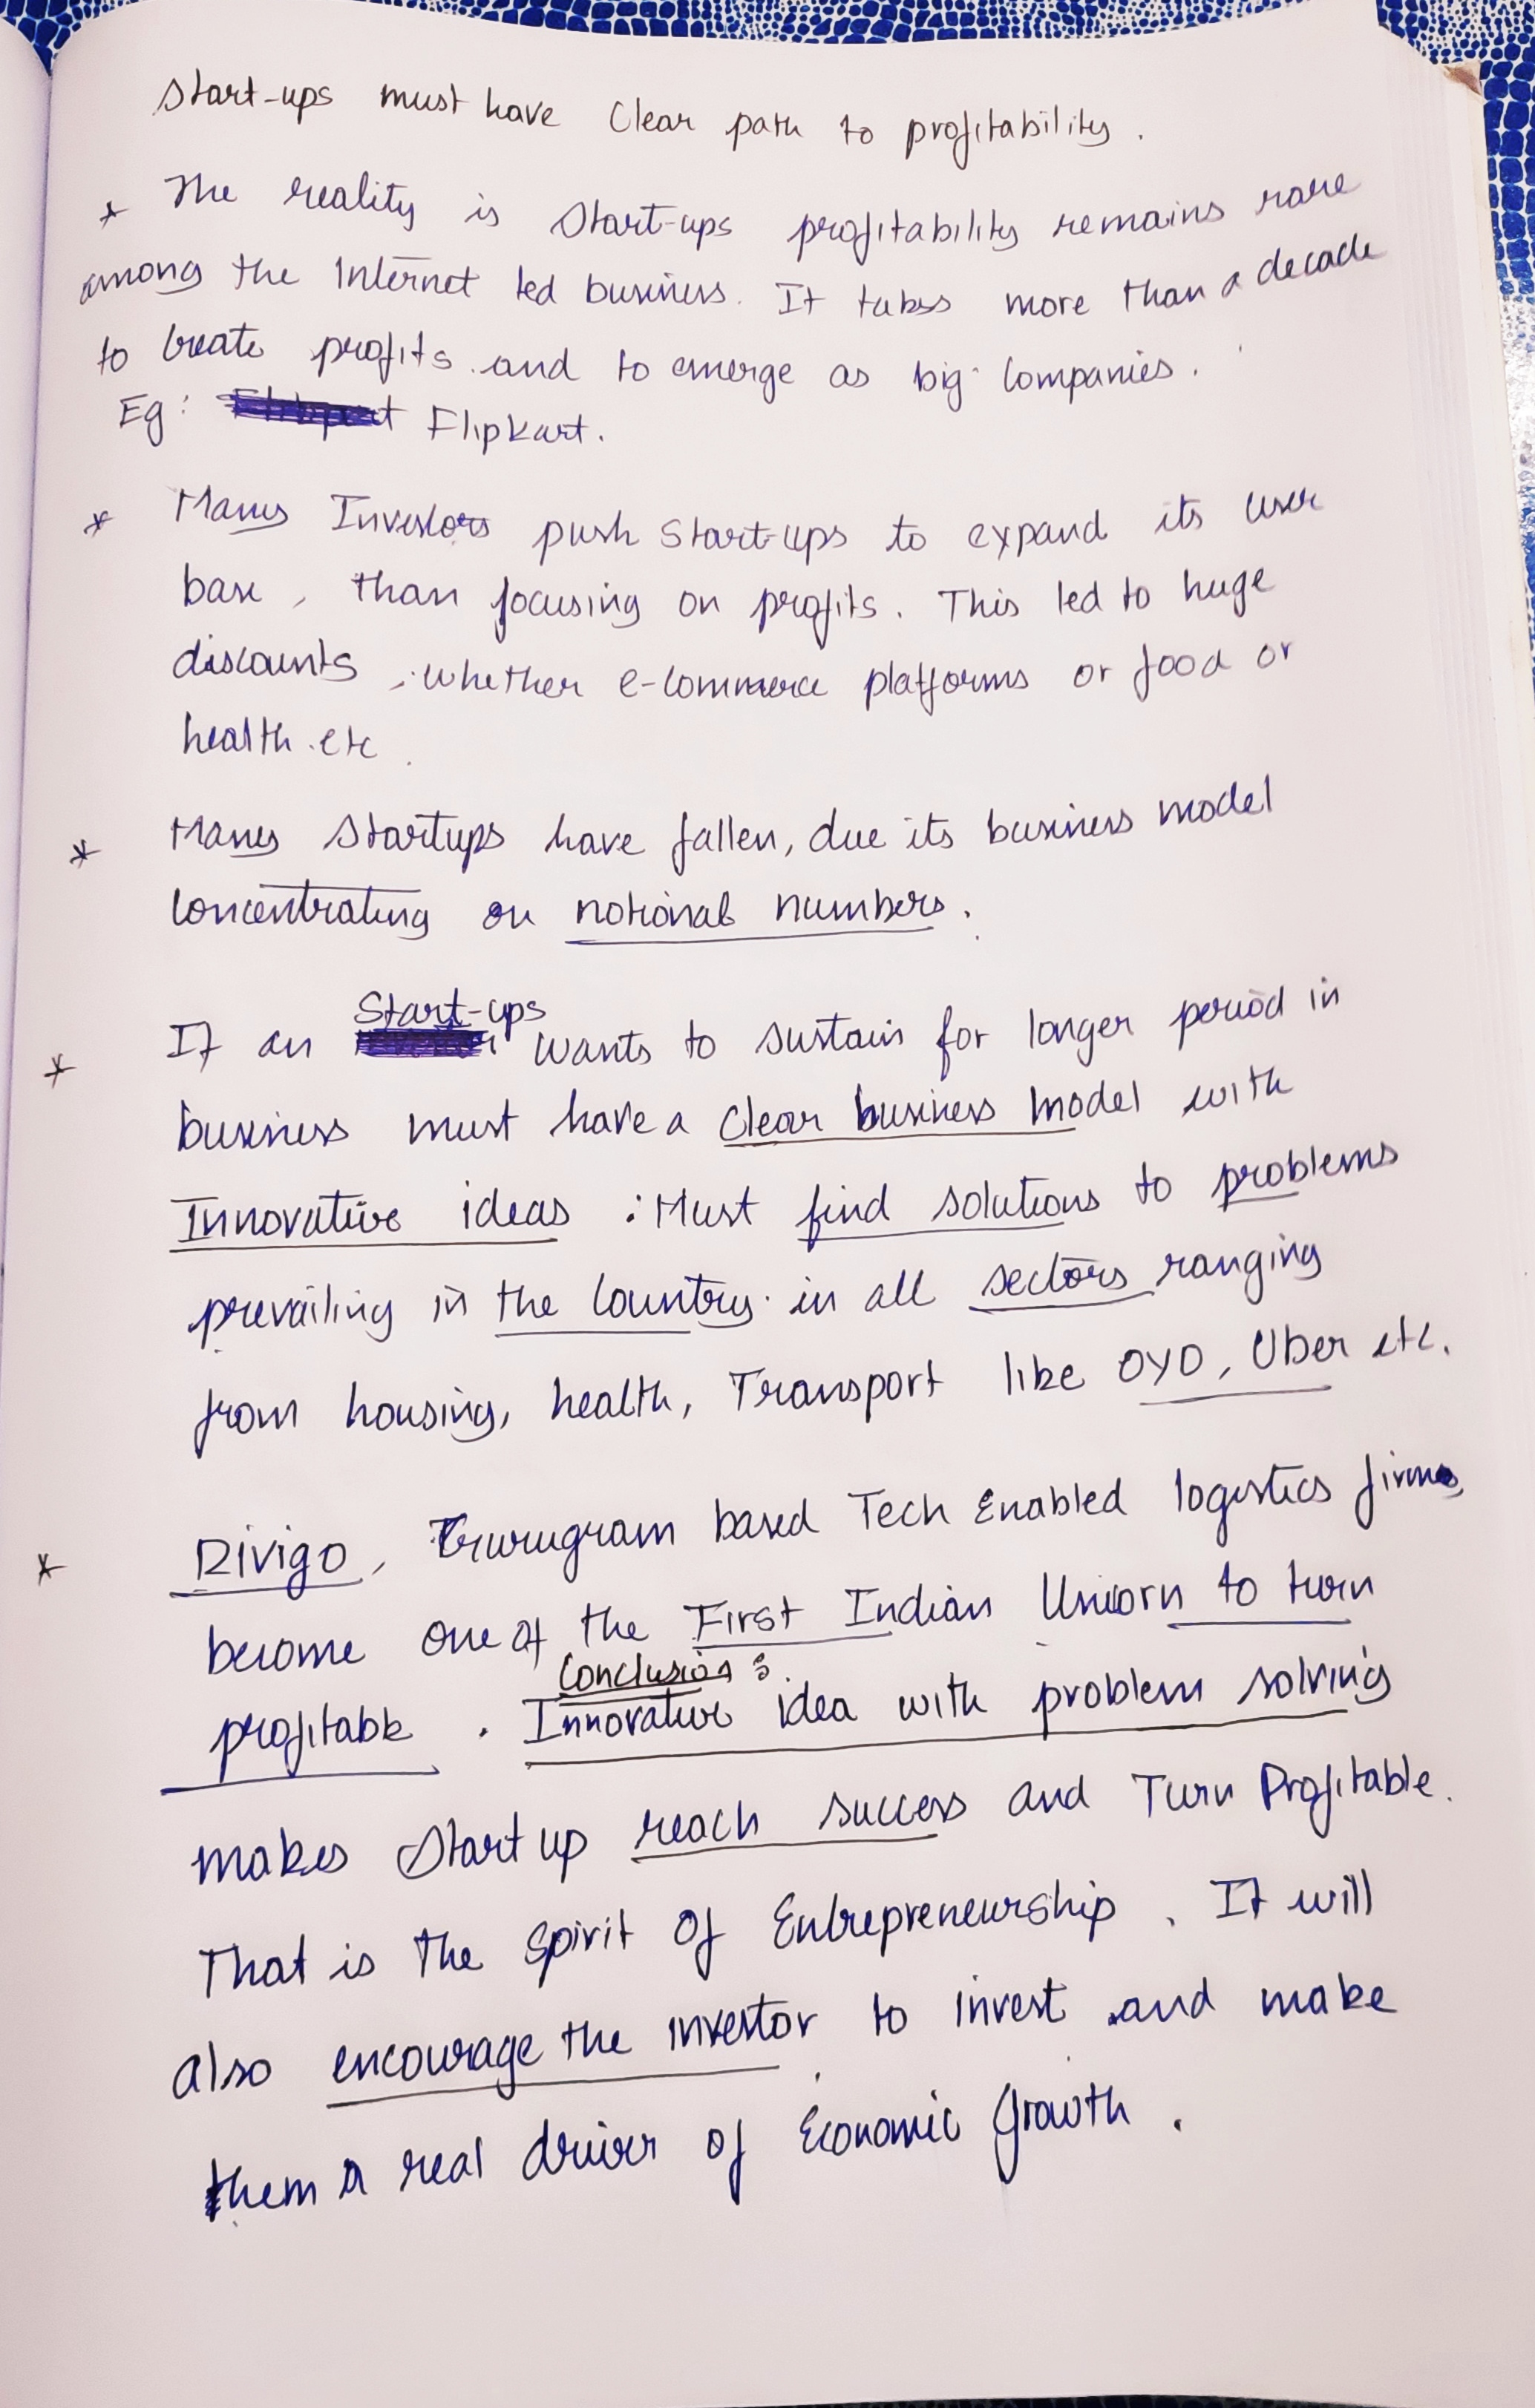 Start-ups must have Clear path to profitability.
* The reality is Start-ups profitability remains rare
among the Internet led business. It takes more than a decade
to create profits and to emerge as big companies.
Eg: Flipkart.
* Many Investors push Start-ups to expand its user
base, than focusing on profits. This led to huge
discounts, whether e-commerce platforms or food or
health etc.
* Many Startups have fallen, due its business model
concentrating on notional numbers.
Start-ups
* If an wants to sustain for longer period in
business must have a clear business model with
Innovative ideas : Must find solutions to problems
prevailing in the country in all sectors ranging
from housing, health, Transport like OYO, Uber etc.
* Rivigo, Gurugram based Tech Enabled logistics firms
become one of the First Indian Unicorn to turn
Conclusion :
profitable. Innovative idea with problem solving
makes Start up reach success and Turn Profitable.
That is the spirit of Entrepreneurship. It will
also encourage the investor to invest and make
them a real driver of Economic Growth.